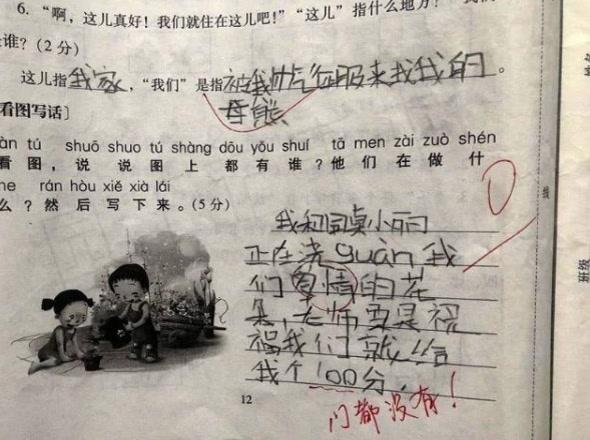 6. “啊，这儿真好！我们就住在这儿吧！”“这儿”指什么地方？“我们
是谁？（2 分）
这儿指我家，“我们”是指被我帅气征服来找我的
母熊。
看图写话］
àn tú shuō shuo tú shàng dōu yǒu shuí tā men zài zuò shén
看图，说说图上都有谁？他们在做什
me rán hòu xiě xià lái
么？然后写下来。（5 分）
0
我和同桌小丽
正在浇guàn我
们 情的花
朵，老师要是祝
福我们就给
我个100分，
门都没有！
12
线
班级